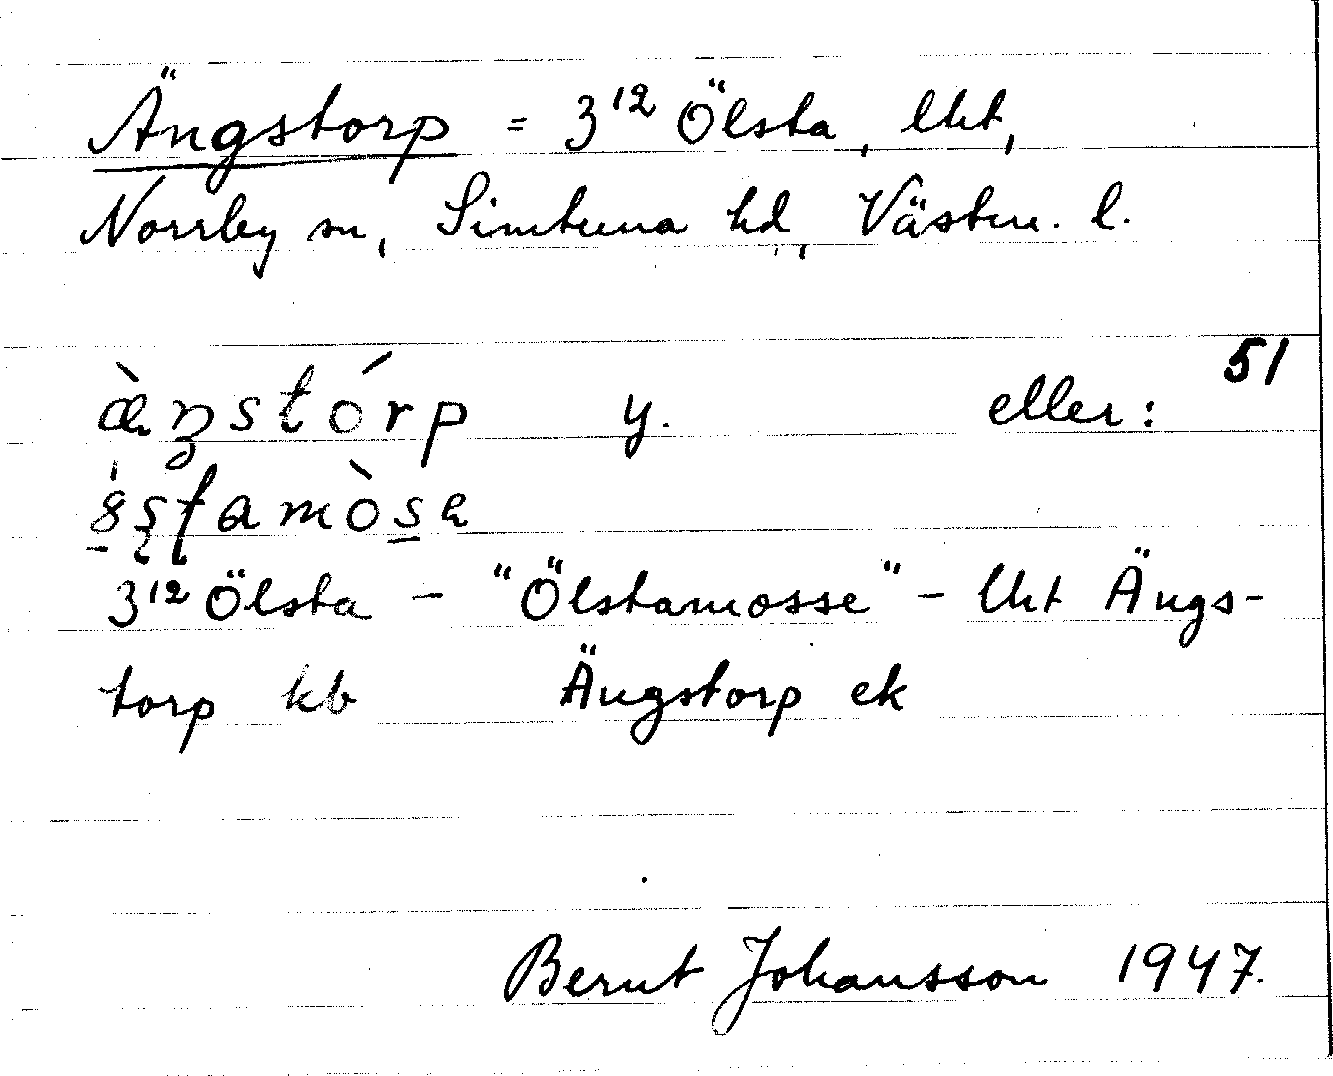 Ängstorp = 3¹² Ölsta, lht,
Norrby sn, Simtuna hd, Västm. l.
51
æ̀ŋstórp y. eller:
3¹² Ölsta – "Ölstamosse" – lht Ängs-
torp kb Ängstorp ek
Bernt Johansson 1947.